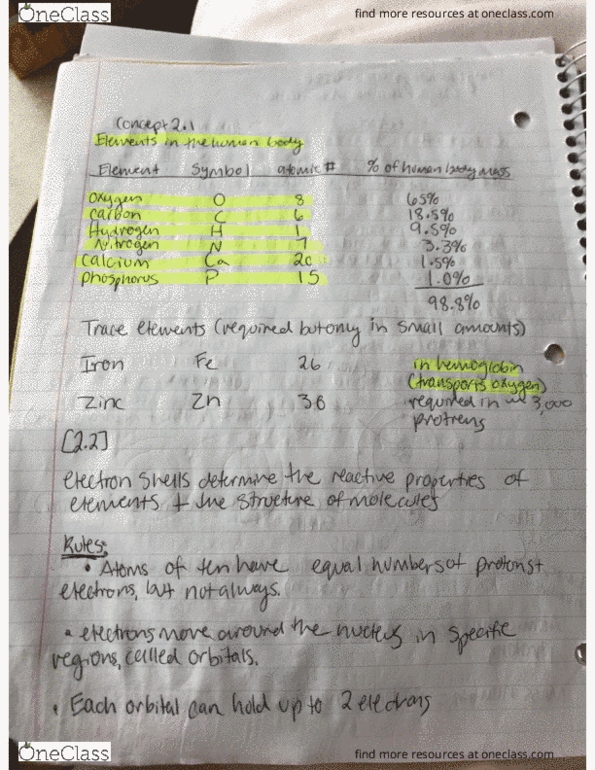 OneClass
find more resources at oneclass.com
Concept 2.1
Elements in the human body
Element Symbol atomic # % of human body mass
oxygen O 8 65%
carbon C 6 18.5%
Hydrogen H 1 9.5%
Nitrogen N 7 3.3%
calcium Ca 20 1.5%
phosphorus P 15 1.0%
98.8%
Trace elements (required but only in small amounts)
Iron Fe 26 in hemoglobin
(transports oxygen)
Zinc Zn 30 required in 3,000
proteins
[2.2]
electron shells determine the reactive properties of
elements + the structure of molecules
Rules:
• Atoms often have equal numbers of protons +
electrons, but not always.
• electrons move around the nucleus in specific
regions, called orbitals.
• Each orbital can hold up to 2 electrons
OneClass
find more resources at oneclass.com